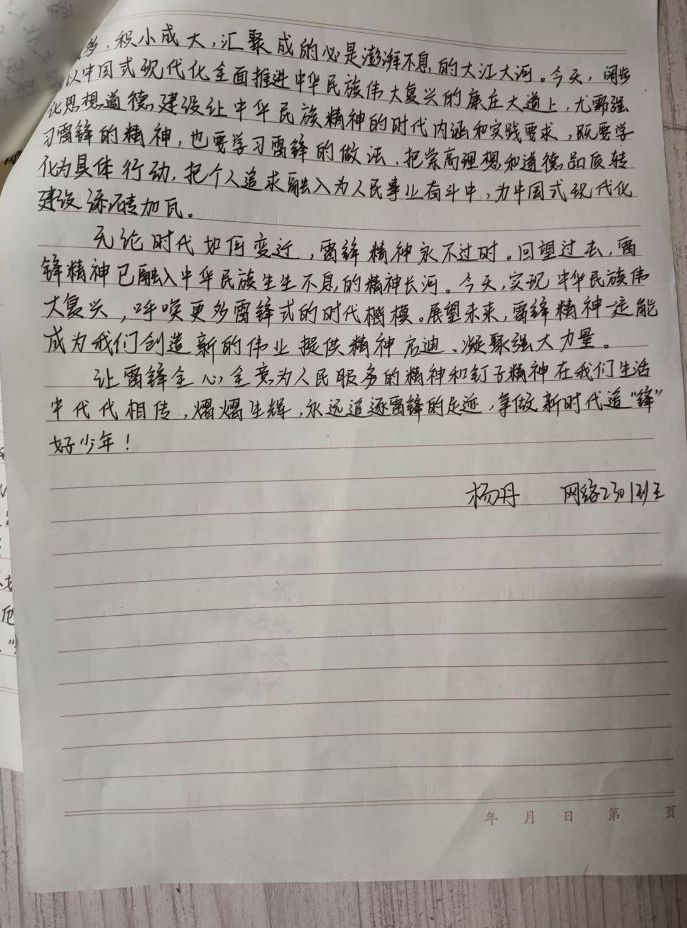 多,积小成大,汇聚成的必是澎湃不息的大江大河。今天,阔步
以中国式现代化全面推进中华民族伟大复兴的康庄大道上,尤需强
化思想道德建设让中华民族精神的时代内涵和实践要求,既要学
习雷锋的精神,也要学习雷锋的做法,把崇高理想和道德品质转
化为具体行动,把个人追求融入为人民事业奋斗中,为中国式现代化
建设添砖加瓦。
无论时代如何变迁,雷锋精神永不过时。回望过去,雷
锋精神已融入中华民族生生不息的精神长河。今天,实现中华民族伟
大复兴,呼唤更多雷锋式的时代楷模。展望未来,雷锋精神一定能
成为我们创造新的伟业提供精神启迪、凝聚强大力量。
让雷锋全心全意为人民服务的精神和钉子精神在我们生活
中代代相传,熠熠生辉,永远追逐雷锋的足迹,争做新时代追“锋”
好少年!
杨丹 网络231班
年 月 日 第 页